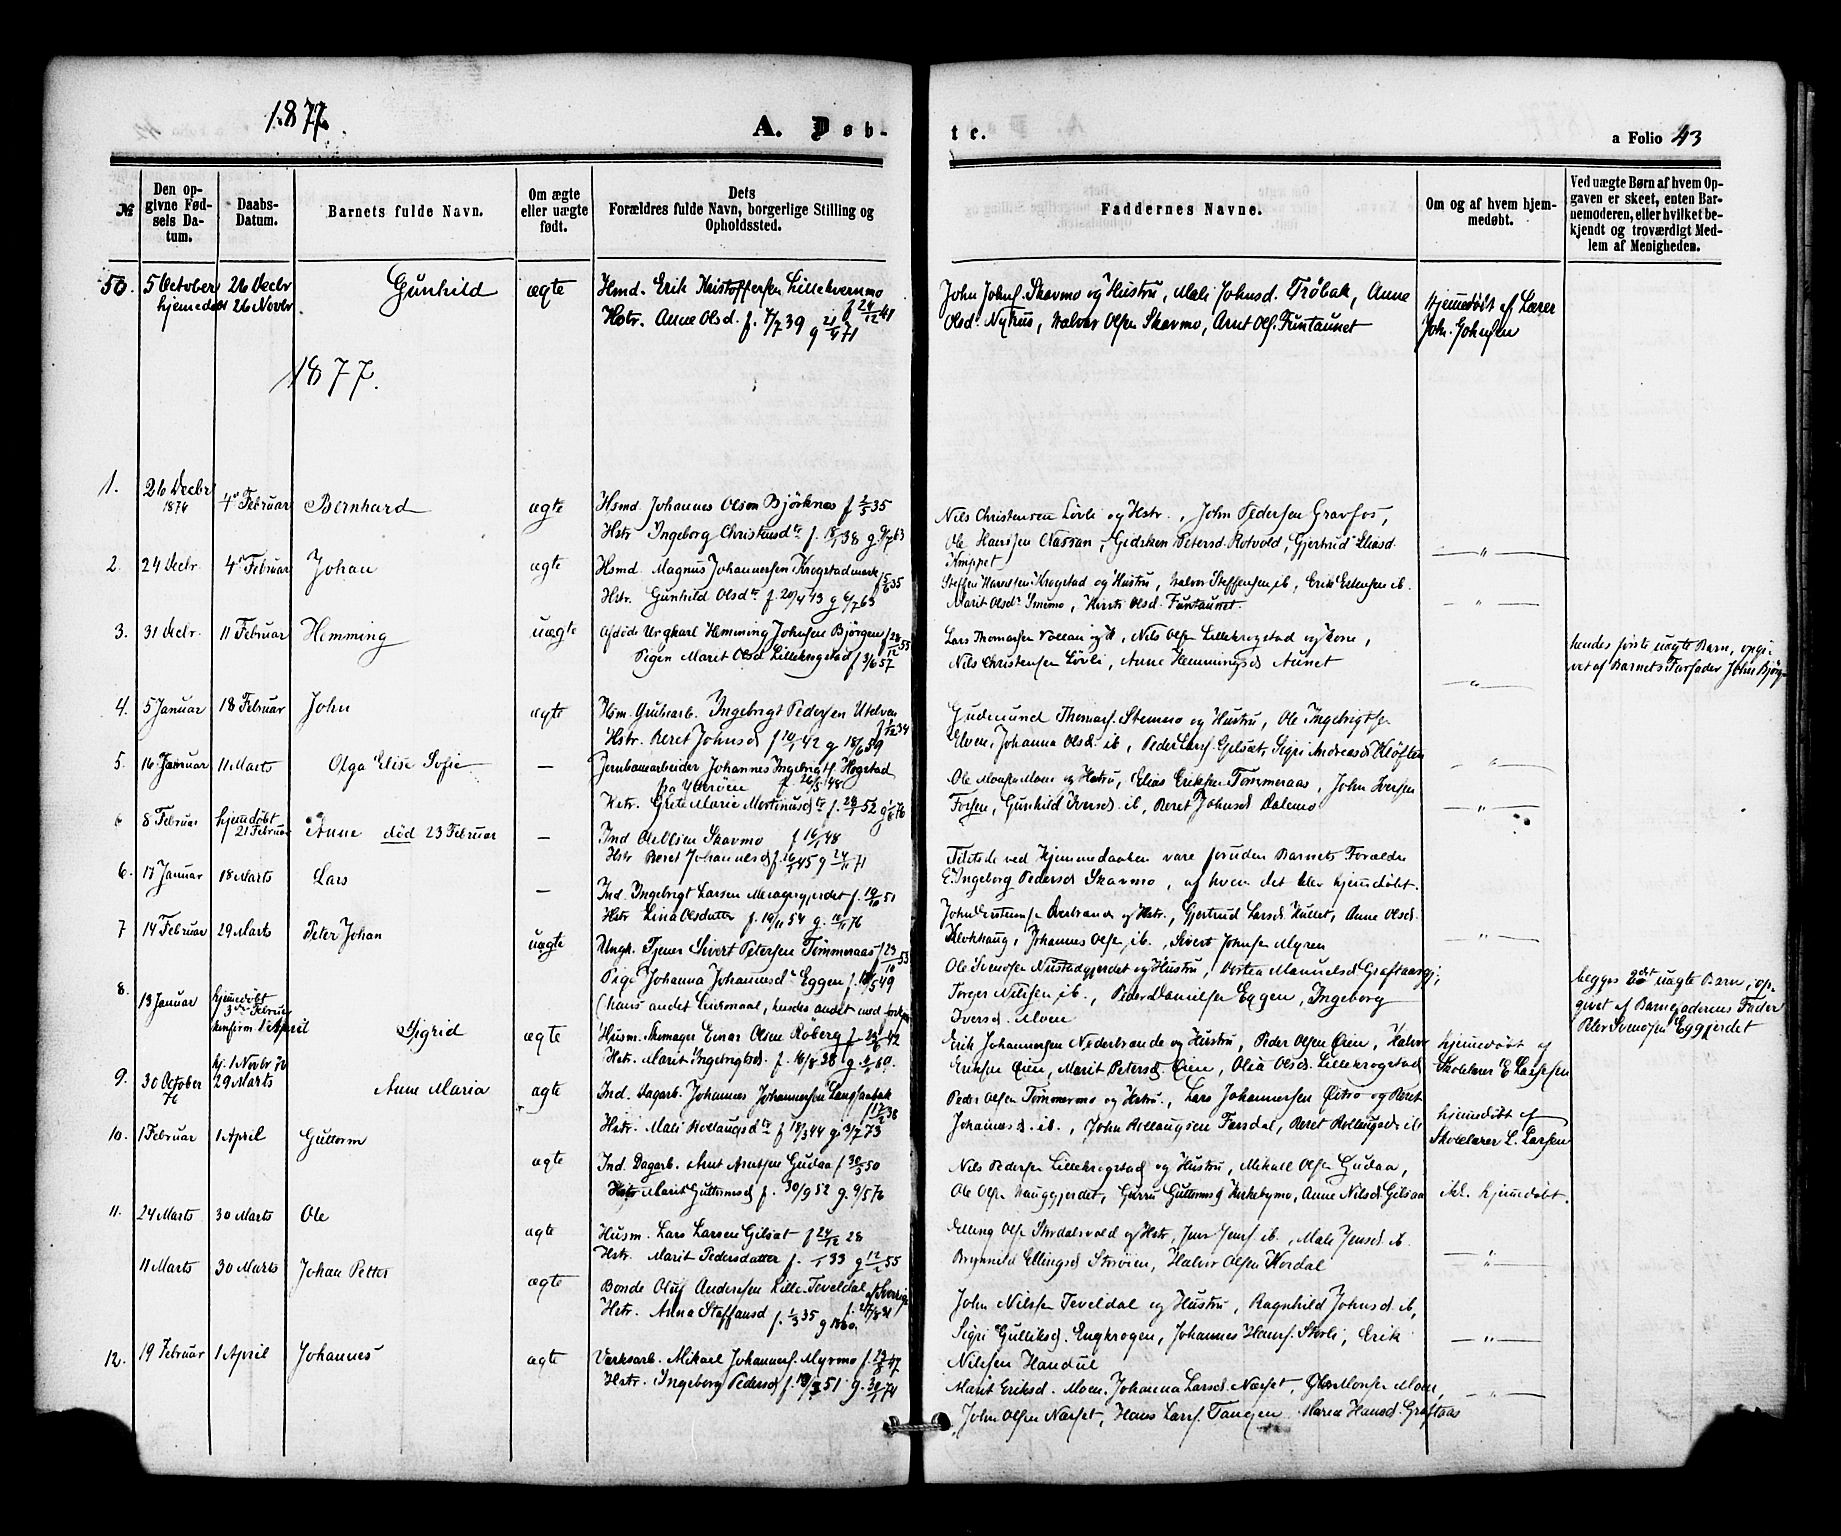 1877.
A. Døb-
te.
a Folio 43
№
Den op-
givne Fød-
sels Da-
tum.
Daabs-
Datum.
Barnets fulde Navn.
Om ægte
eller uægte
født.
Dets
Forældres fulde Navn, borgerlige Stilling og
Opholdssted.
Faddernes Navne.
Om og af hvem hjem-
medøbt.
Ved uægte Børn af hvem Op-
gaven er skeet, enten Bar-
nemoderen, eller hvilket be-
kjendt og troværdigt Med-
lem af Menigheden.
50. 5 October 26 Decbr Gunhild ægte Hmd. Erik Kristoffersen Lillekvernmo f 24/12 41
hjemedøbt 26 Novbr. Hstr. Anne Olsd. f. 7/7 39 g 21/4 71
John Johns. Skavmo og Hustru, Mali Johnsd. Trøbak, Anne
Olsd. Nyhus, Halvor Olsen Skavmo, Arnt Ols. Funtaunet
hjemmedøbt af Lærer
Joh. Johnsen
1877.
1. 26 Decbr 1876 4de Februar Bernhard ægte Hsmd Johannes Olsen Bjørknæs f 2/5 35
Hstr Ingeborg Christensdtr f. 18/1 38 g. 9/7 63
Nils Christensen Lövli og Hstr., John Pedersen Gravfos,
Ole Hansen Aassan, Gidsken Petersd. Rotvold, Gjertrud Eliasd.
Knippet
2. 24 Decbr 4de Februar Johan ægte Hsmd. Magnus Johannesen Krogstadmark f 5/6 35
Hstr. Gunhild Olsdtr f. 20/4 43 g 6/7 63
Steffen Hansen Krogstad og Hustru, Halvor Steffensen ib, Erik Estensen ib.
Marit Olsdr Smemo, Kirsti Olsd. Funtaunet.
3. 31 Decbr. 11 Februar Hemming uægte Afdøde Ungkarl Hemming Johnsen Bjørgen f 28/12 55
Pigen Marit Olsd Lillekrogstad f 3/6 57
Lars Thomassen Vollan og H, Nils Olsen Lillekrogstad og Kone,
Nils Christensen Lövli, Anne Hemmingsd Aunet
hendes første uægte Barn, opgi-
vet af Barnets Farfader John Bjørg-
4. 5 Januar 18 Februar John ægte Hsm. Grubearb. Ingebrigt Pedersen Utelven f 1/12 34
Hstr. Beret Johnsd f 10/1 42 g 18/6 59
Gudmund Thomas. Stenmo og Hustru, Ole Ingebrigtsen
Elven, Johanna Olsd. ib, Peder Lars. Gilsat, Sigri Andreasd Kløften
5. 16 Januar 11 Marts Olga Elise Sofie — Jernbanearbeider Johannes Ingebrigts Hogstad
fra Ytterøen f 26/5 48
Hstr. Grete Marie Martinusdtr f. 28/2 52 g 1/8 76
Ole Mons. Moen og Hustru, Elias Eriksen Tømmeraas, John Iversen
Forsen, Gunhild Iversd ib, Beret Johnsd Dalemo
8 Februar hjemdøbt 21 Februar Anne død 23 Februar — Ind Ole Olsen Skavmo f 16/1 48
Hstr Beret Johannesd f. 16/4 45 g 24/11 71
Tilstede ved Hjemmedaaben vare foruden Barnets Forældre
E. Ingeborg Pedersd Skavmo, af hvem det blev hjemdøbt.
6. 17 Januar 18 Marts Lars — Ind. Ingebrigt Larsen Meragergjerdet f. 10/10 51
Hstr Lina Olsdatter f. 14/11 54 g. 10/11 76
Overbrande og Hstr., Gjertrud Larsd. Hullet, Anne Olsd.
Klokhaug, Johannes Olsen ib., Sivert Johnsen Myren
7 14 Februar 29 Marts Peter Johan uægte Ungk. Tjener Sivert Petersen Tømmeraas f 23/10 53
Pige Johanna Johannesd. Eggen f. 18/5 49
(hans andet Leiermaal, hendes andet med
Ole Svensen Nustadgjerdet og Hustru, Dortea Manuelsd Graftaasgj;
Torger Nilsen ib., Peder Danielsen Eggen, Ingeborg
Iversd. Moen
begges 2det uægte Barn, op-
givet af Barnefaderens Fader
Peter Svensen Eggjerdet
8. 13 Januar hjemedøbt 3die Februar
konfirm 1 April Sigrid ægte Husm. Skomager Einar Olsen Røberg f 24/6 42
Hstr. Marit Ingebrigtsd. f. 16/8 38 g. 4/6 60.
Erik Johannesen Nederbrande og Hustru, Peder Olsen Øien, Halvor
Eriksen Øien, Marit Petersd. Øien, Olia Olsd. Lillekrogstad
hjemedøbt af
Skolelærer E Larsen
9. 30 October 76 hj. 1 Novbr 76
29 Marts Anne Maria ægte Ind. Dagarb. Johannes Johannesen Langsaabak f 17/2 38
Hstr. Mali Rollaugsdtr f 18/3 44 g. 3/7 73
Peder Olsen Tømmermo og Hstru., Lars Johannesen Øitrø og Beret
Johannesd. ib., John Rollaugsen Farsdal, Beret Rollaugsd ib
hjemedøbt af
Skolelærer L. Larsen
10. 1 Februar 1 April Guttorm ægte Ind. Dagarb. Arnt Arntsen Gudaa f 30/3 50
Hstr Marit Guttormsd f. 30/9 52 g. 9/5 76
Nils Pedersen Lillekrogstad og Hustru, Mikael Olsen Gudaa,
Ole Olsen Hauggjerdet, Gurru Guttormsd Kirkebymo, Anne Nilsd. Gilsaa
ikl. hjemedøbt.
11. 24 Marts 30 Marts Ole ægte Husm. Lars Larsen Gilsat f 24/12 28
Hstr. Marit Pedersdatter f. /1 33 g 12/2 55
Elling Ols. Stordalsvold og Hstr, Jens Jens. ib., Mali Jensd. ib.
Brynhild Ellingsd Storøien, Halvor Olsen Kordal
11 Marts 30 Marts Johan Petter ægte Bonde Oluf Andersen Lille Teveldal af Sverige
Hstr. Anna Staffansd f. 1/3 35 g 1860. f. 27/8 31
John Nilsen Teveldal og Hustru, Ragnhild Johnsd. ib,
Sigri Gulliksd. Engkrogen, Johannes Hans. Storli, Erik
Nilssen Handøl
12. 19 Februar 1 April Johannes ægte Værksarb. Mikael Johannes. Myrmo f. 29/8 47
Hstr. Ingeborg Pedersd f. 18/3 51 g. 30/7 74
Marit Eriksd. Moen, Johanna Larsd. Næset, Ole Monsen Moen,
John Olsen Næset, Hans Lars. Tangen Maren Hansd. Graftaas